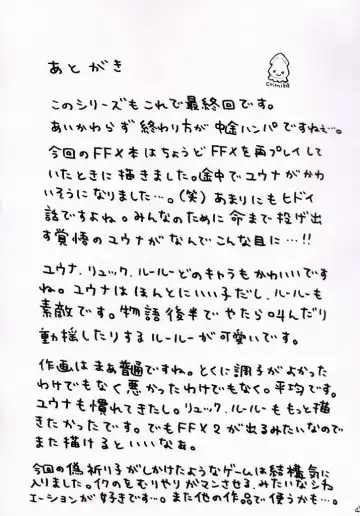 あとがき
chimiko
このシリーズもこれで最終回です。
あいかわらず終わり方が中途ハンパですねぇ…。
今回のFFX本はちょうどFFXを再プレイして
いたときに描きました。途中でユウナがかわ
いそうになりました…。(笑)あまりにもヒドイ
話ですよね。みんなのために命まで投げ出
す覚悟のユウナがなんでこんな目に…!!
ユウナ、リュック、ルールーどのキャラもかわいいです
ね。ユウナはほんとにいい子だし、ルールーも
素敵です。物語後半でやたら叫んだり
動揺したりするルールーが可愛いです。
作画はまあ普通ですね。とくに調子がよかった
わけでもなく悪かったわけでもなく。平均です。
ユウナも慣れてきたし。リュック、ルールーももっと描
きたかったです。でもFFX2が出るみたいなので
また描けるといいなぁ。
今回の偽祈り子がしかけたようなゲームは結構気に
入りました。イクのをむりやりガマンさせる、みたいなシチュ
エーションが好きです…。また他の作品で使うかも…。